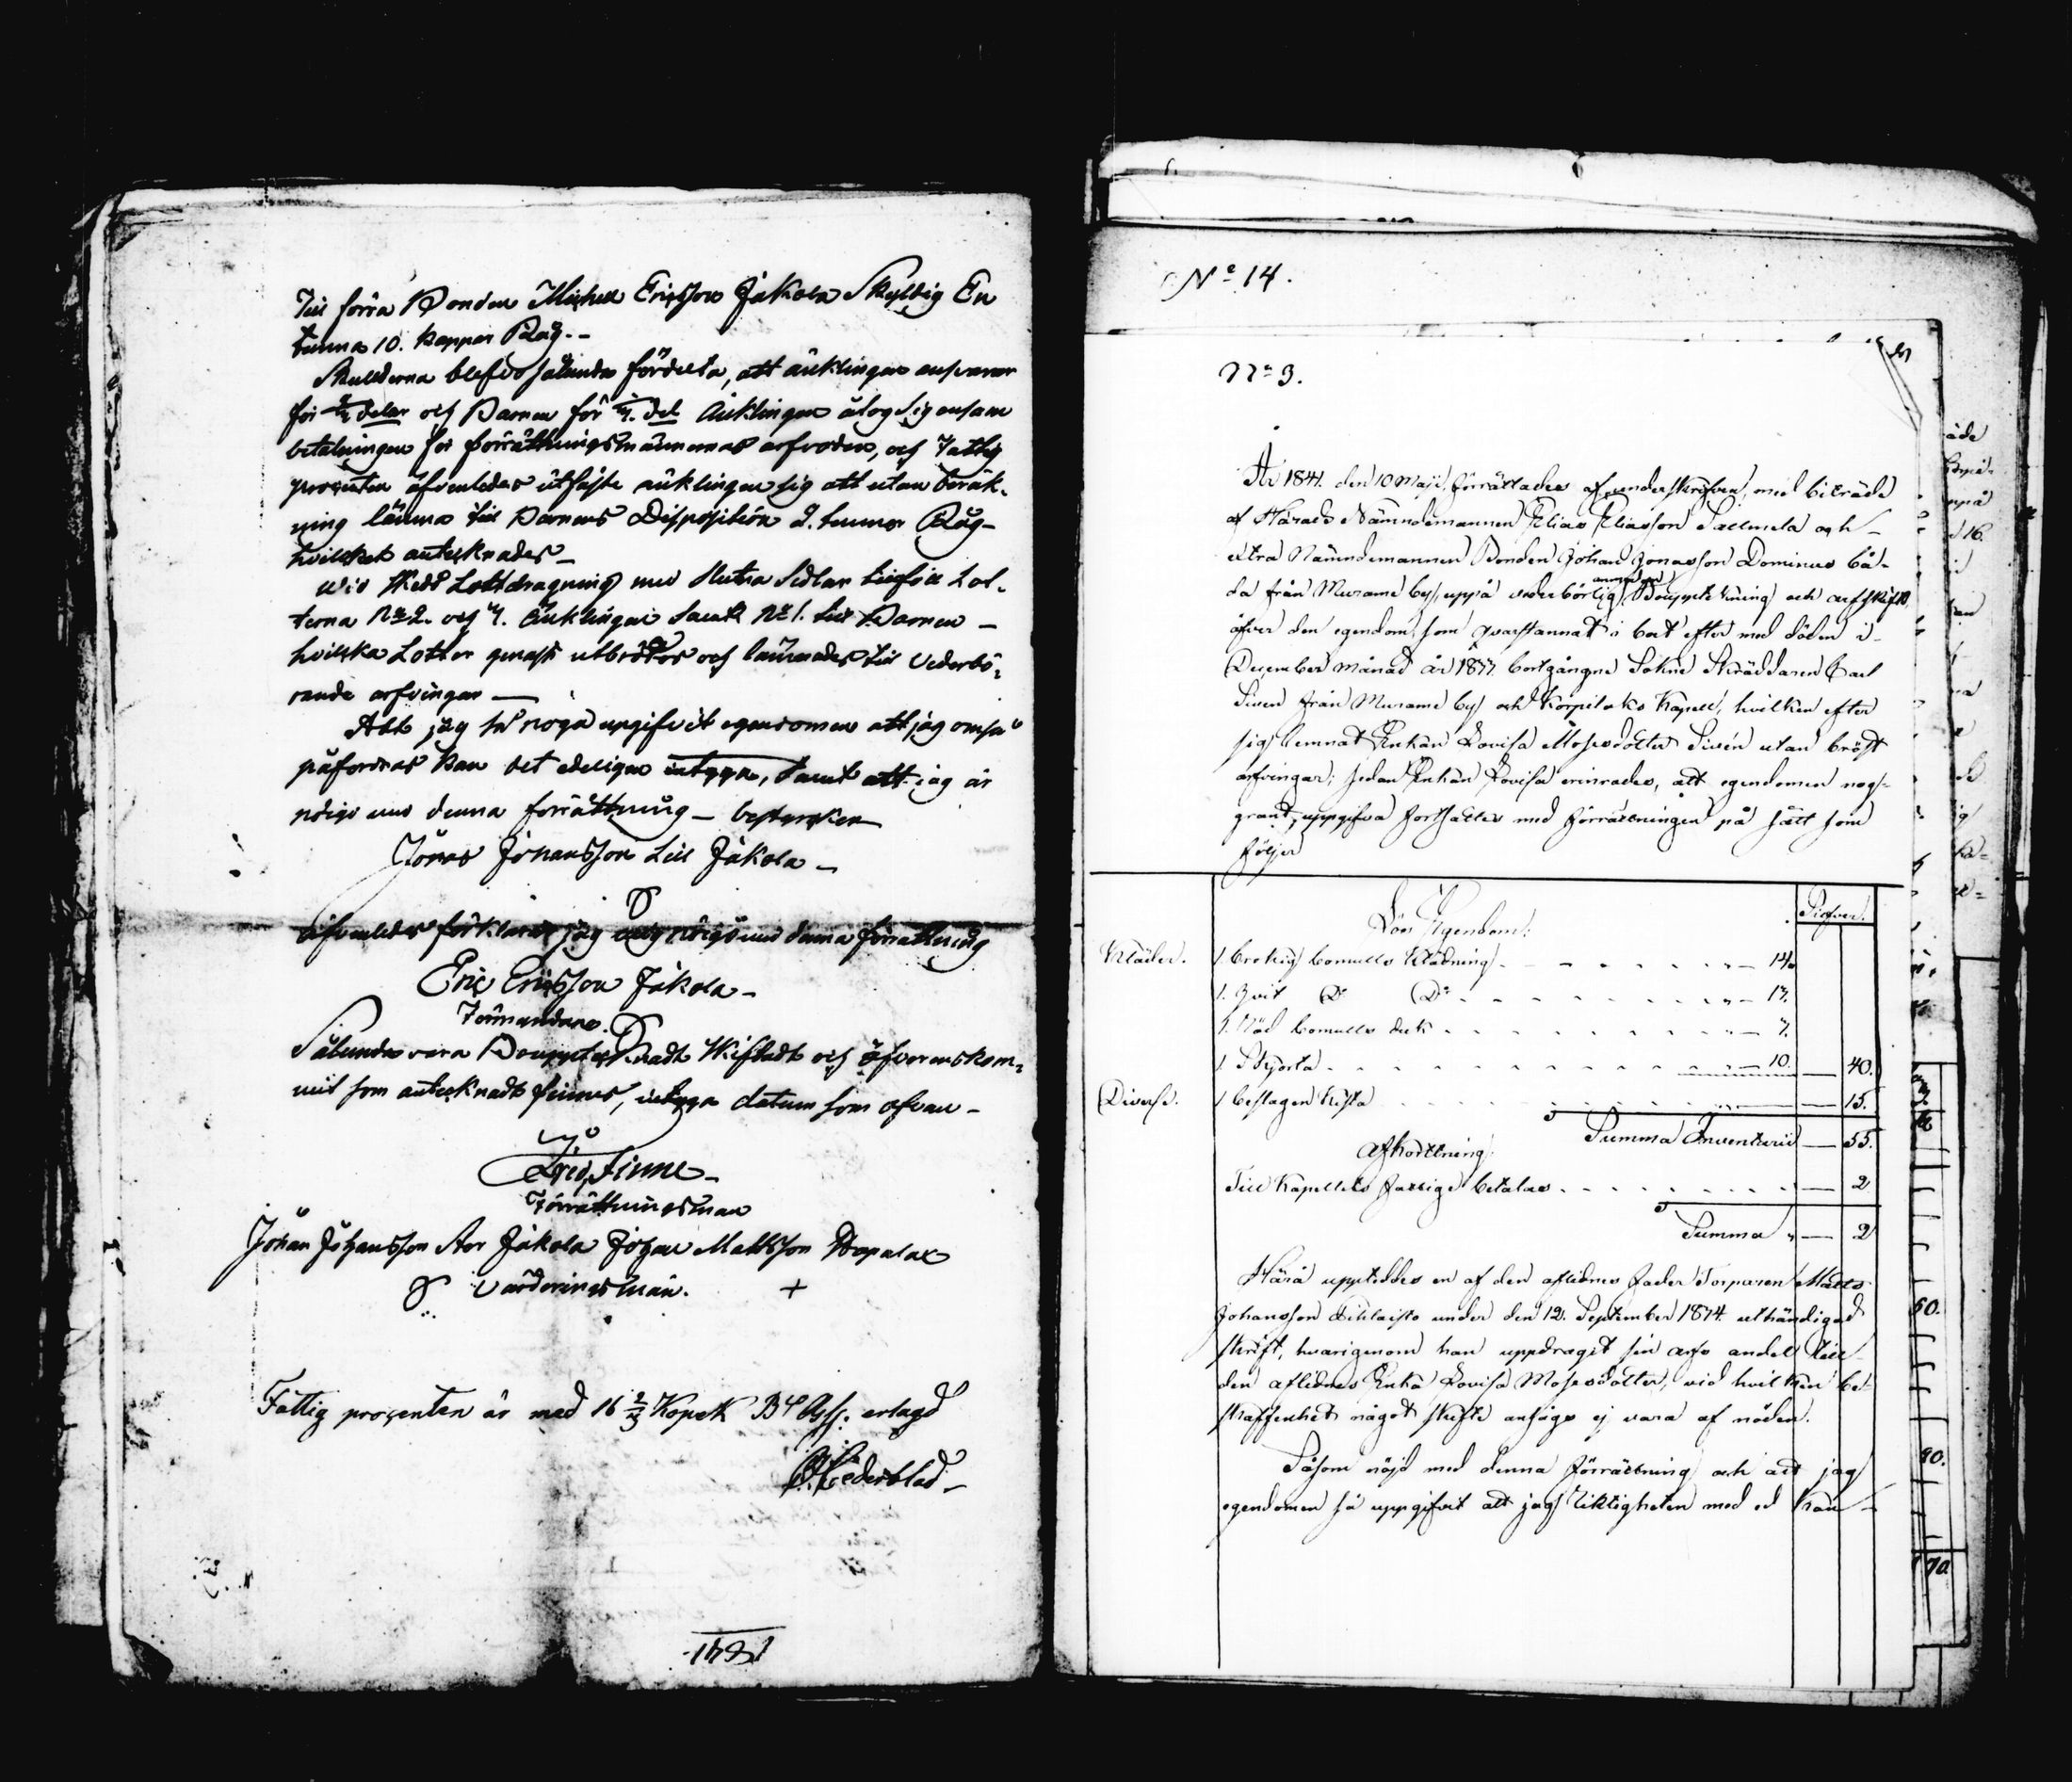 Till förra Bonden Michel Ericsson Jäkola Skyldig En
tunna 10. kappar Råg. -
Skulderna blefvo sålunda fördelta, att änklingen ansvarar
för delar och Barnen för del Änklingen åtog sig ensam
betalningen för förrättningsmännernas arfvoden, och Fattig
procenten äfvenledes utfäste änklingen sig att utan beräk-
ning lämna till Barnens Disposition 2. tunnor Råg -
hvilket antecknades -
wid skedd Lottdragning med slutna Sedlar tillföll Lot-
terna No 2. och Änklingen samt No 1. till Barnen -
hvilka Lotter genast utbröttos och lämnades till vederbö-
rande arfvingar -
Att jag så noga uppgifvit egendomen att jag om så
påfordras kan det edeligen intyga, samt att jag är
nöijd med denna förrättning - bestyrker
Jonas Johansson Lill Jäkola -
äfvenledes förklarar jag mig nöigd med denna förrättning
Eric Ericsson Jäkola -
Förmyndare.
Sålunda vara Bouppteknadt skiftadt och öfverenskom-
mit som anteknadt finnes, intyga datum som ofvan -
Finne -
Förrättningsman
Johan Johansson Jäkola Johan Mattsson
Värderingsmän. +
Fattig procenten är med 16 2/3 Kopek Bco Ass. erlagd
Cederblad -
1841
No 14.
No 3.
År 1841. den 10 Maji, förrättades af underskrifven, med biträde
af Härads Nämndemannen Elias Eliasson Sallmela och -
extra Nämndemannen Bonden Johan Jonasson Dominus bå-
da från Murame by, uppå vederbörlig anmodan Bouppteckning och arfskifte
öfver den egendom, som qvarstannat i boet efter med döden i -
December månad år bortgångne Sokne Skräddaren Carl
Siven från Murame by och Korpilaks Kapell, hvilken efter
sig lemnat Enkan Lovisa Mosesdotter Sivén utan bröst
arfvingar; sedan Enkan Lovisa erinrades, att egendomen nog-
grant, uppgifva fortsattes med förrättningen på sätt som
följer
Lös Egendom: Silfver.
Kläder. 1. brokig bomulls klädning - - - 14.
1. hvit Do Do - - - 13.
1. röd bomulls duk - - -
1. Skjorta - - - 10. 40.
Diverse. 1 beslagen kista - - - 15.
Summa Inventarii 55.
Afkortning.
Till Kapellets fattige betalas - - - 2
Summa 2
Härå uppteddes en af den aflidnes fader Torparen Matts
Johansson under den 12. September uthändigad
skrift, hvarigenom han uppdragit sin arfs andel till
den aflidnes Enka Lovisa Mosesdotter, vid hvilken be-
skaffenhet något skifte ansågs ej vara af nöden.
Såsom nöjd med denna förrättning och att jag
egendomen så uppgifvit att jag riktigheten med ed kan -